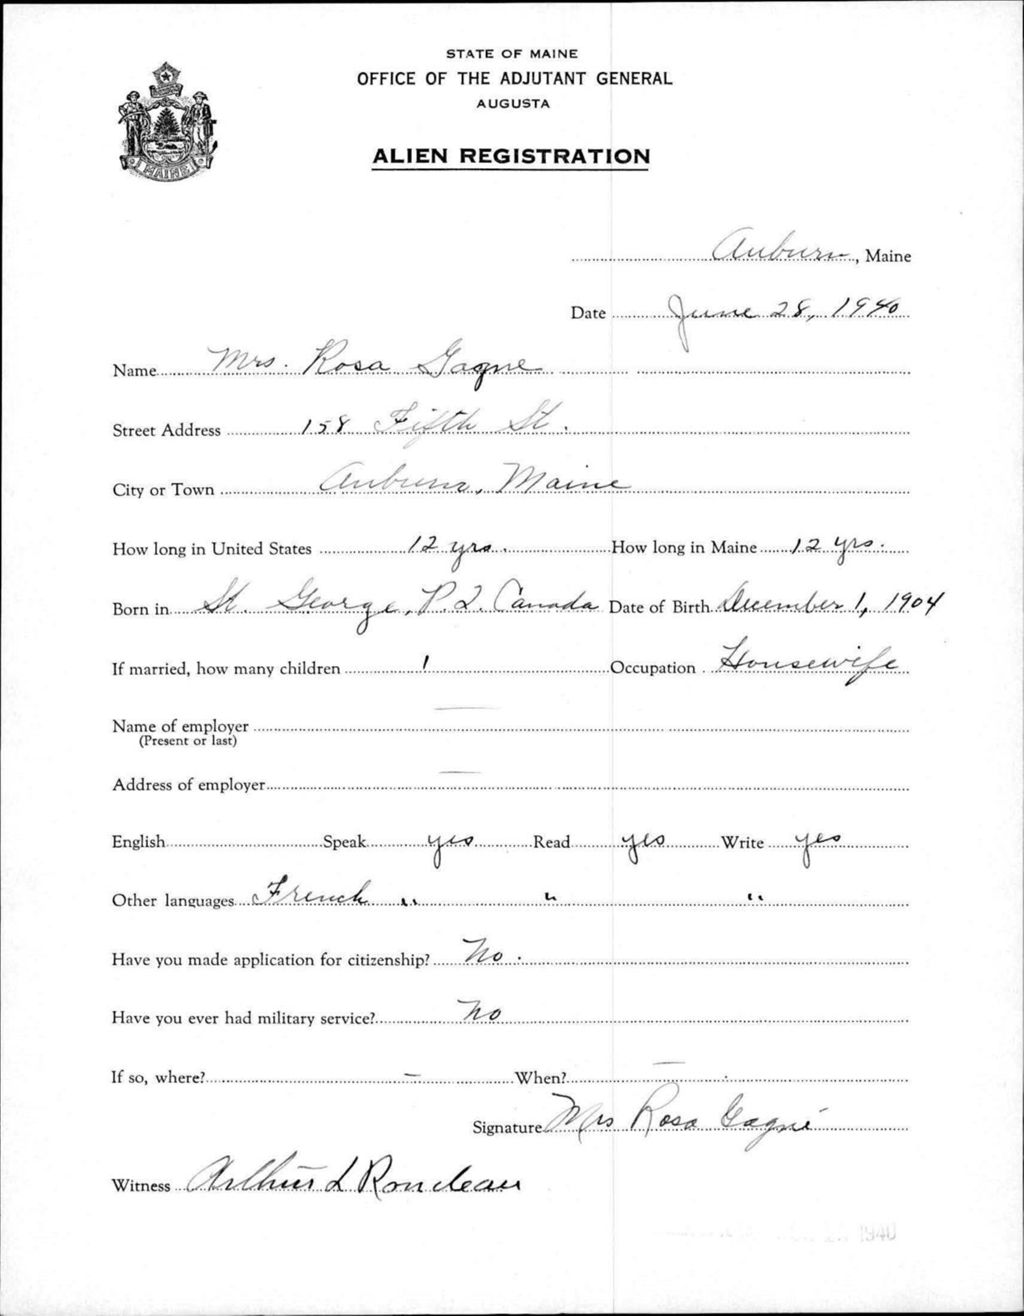 STATE OF MAINE
OFFICE OF THE ADJUTANT GENERAL
AUGUSTA
ALIEN REGISTRATION
MAINE
Auburn, Maine
Date June 28, 1940
Name Mrs. Rosa Gagne
Street Address 158 Fifth St.
City or Town Auburn, Maine
How long in United States 12 yrs. How long in Maine 12 yrs.
Born in St. George, P.Q. Canada Date of Birth December 1, 1904
If married, how many children 1 Occupation Housewife
Name of employer —
(Present or last)
Address of employer —
English Speak yes Read yes Write yes
Other languages French " " "
Have you made application for citizenship? No.
Have you ever had military service? No
If so, where? — When? —
Signature Mrs Rosa Gagné
Witness Arthur L Rondeau
1940